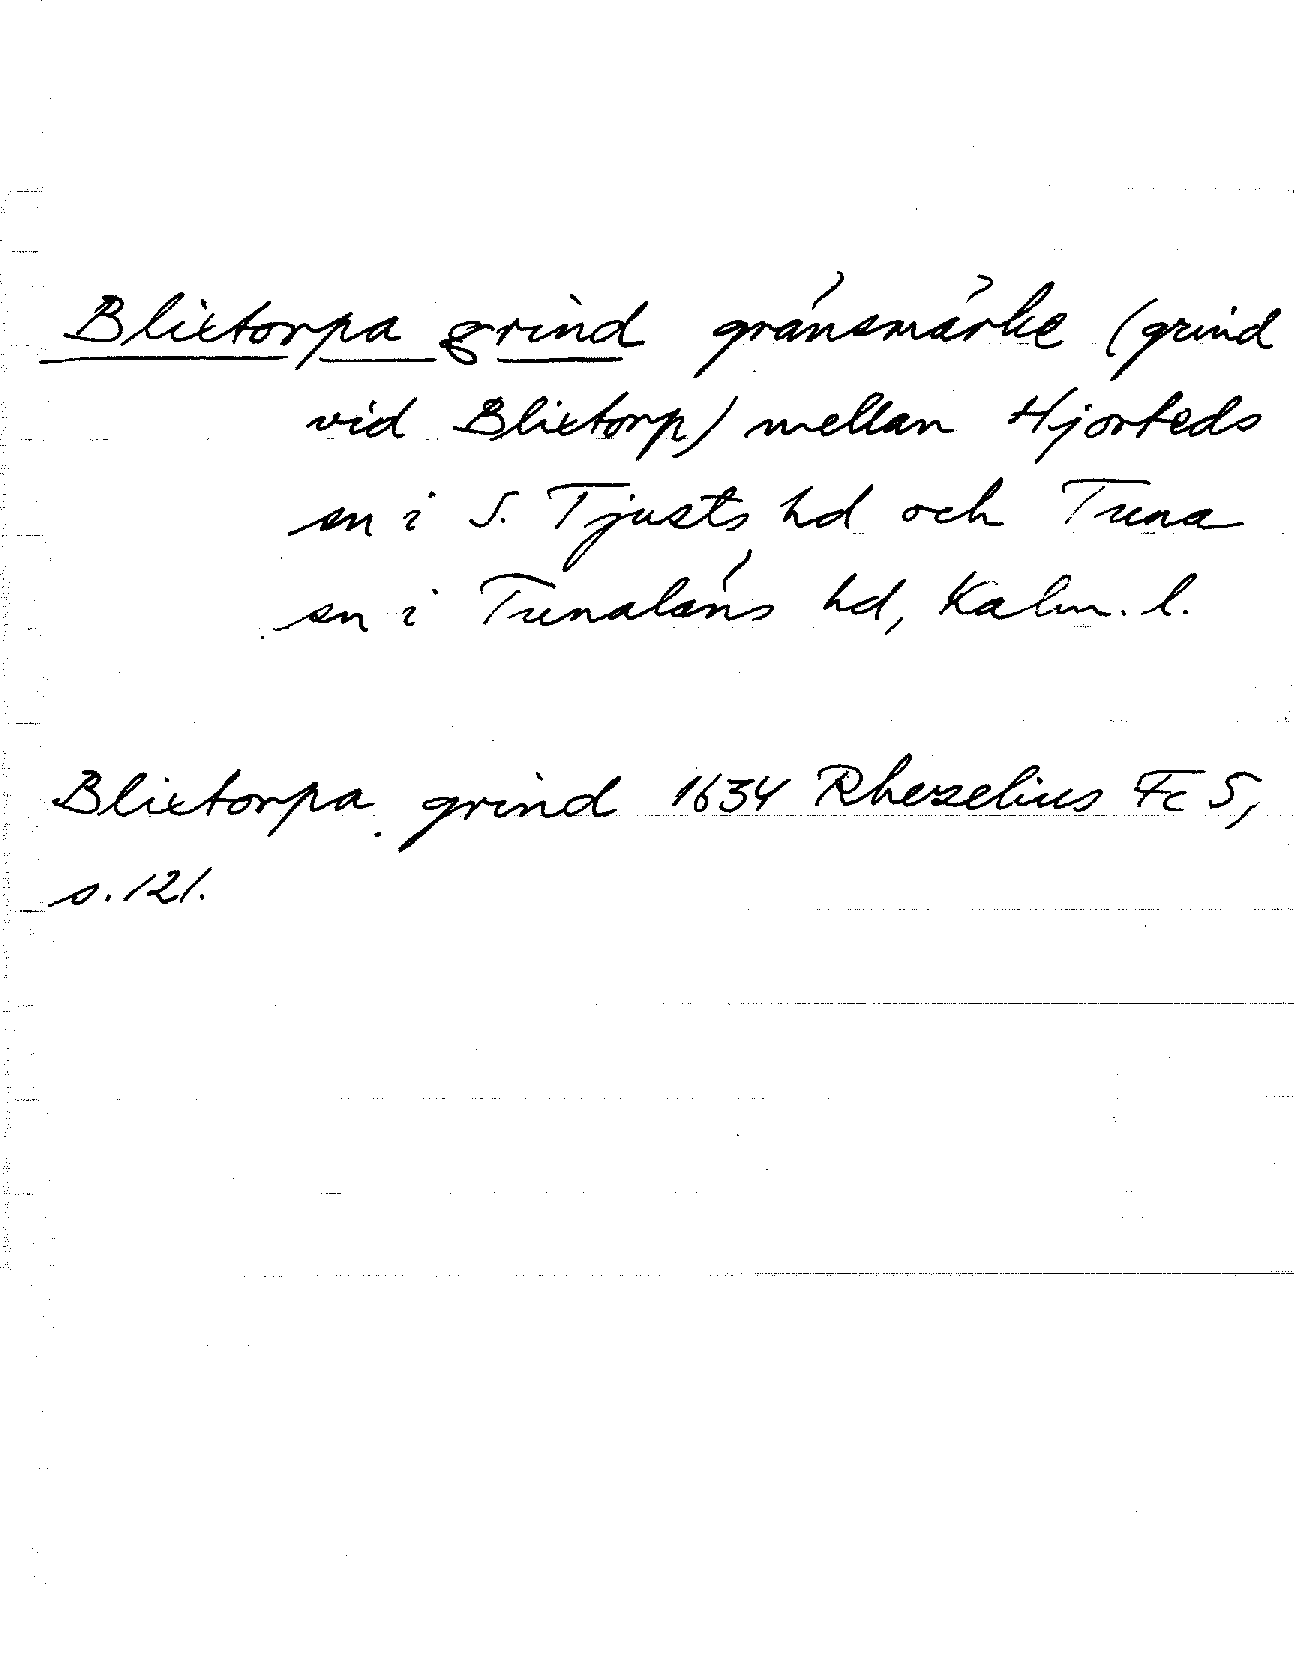 Blixtorpa grind gränsmärke (grind
vid Blixtorp) mellan Hjorteds
sn i S. Tjusts hd och Tuna
sn i Tunaläns hd, Kalm. l.
Blixtorpa grind 1634 Rhezelius Fc 5,
s. 121.